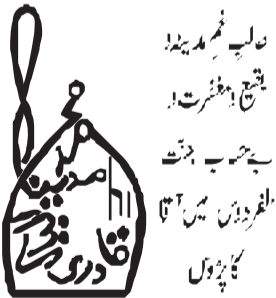 طالبِ غمِ مدینہ و
بقیع و مغفرت و
بے حساب جنت
الفردوس میں آقا
کا پڑوس
محمد
مدینہ
قادری